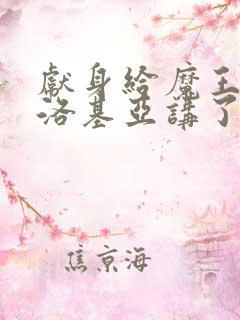 獻身給魔王
洛基亞講了
焦京海